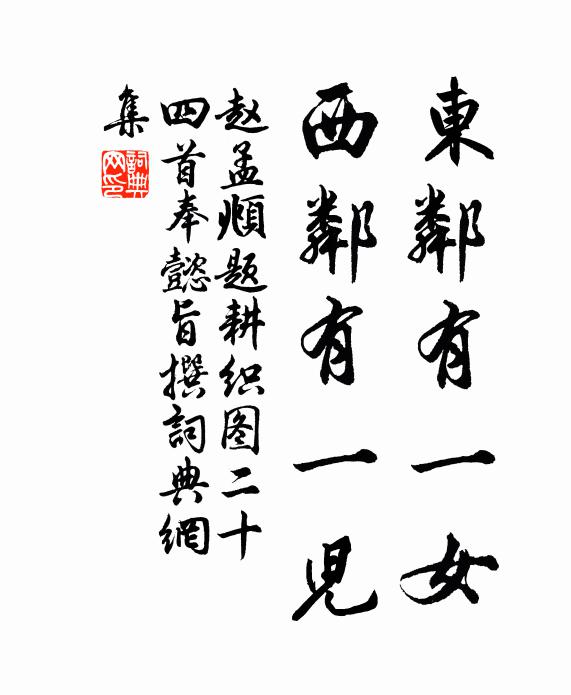 東鄰有一女
西鄰有一児
赵孟頫题耕织图二十
四首奉懿旨撰詞典網
集
詞典
网印